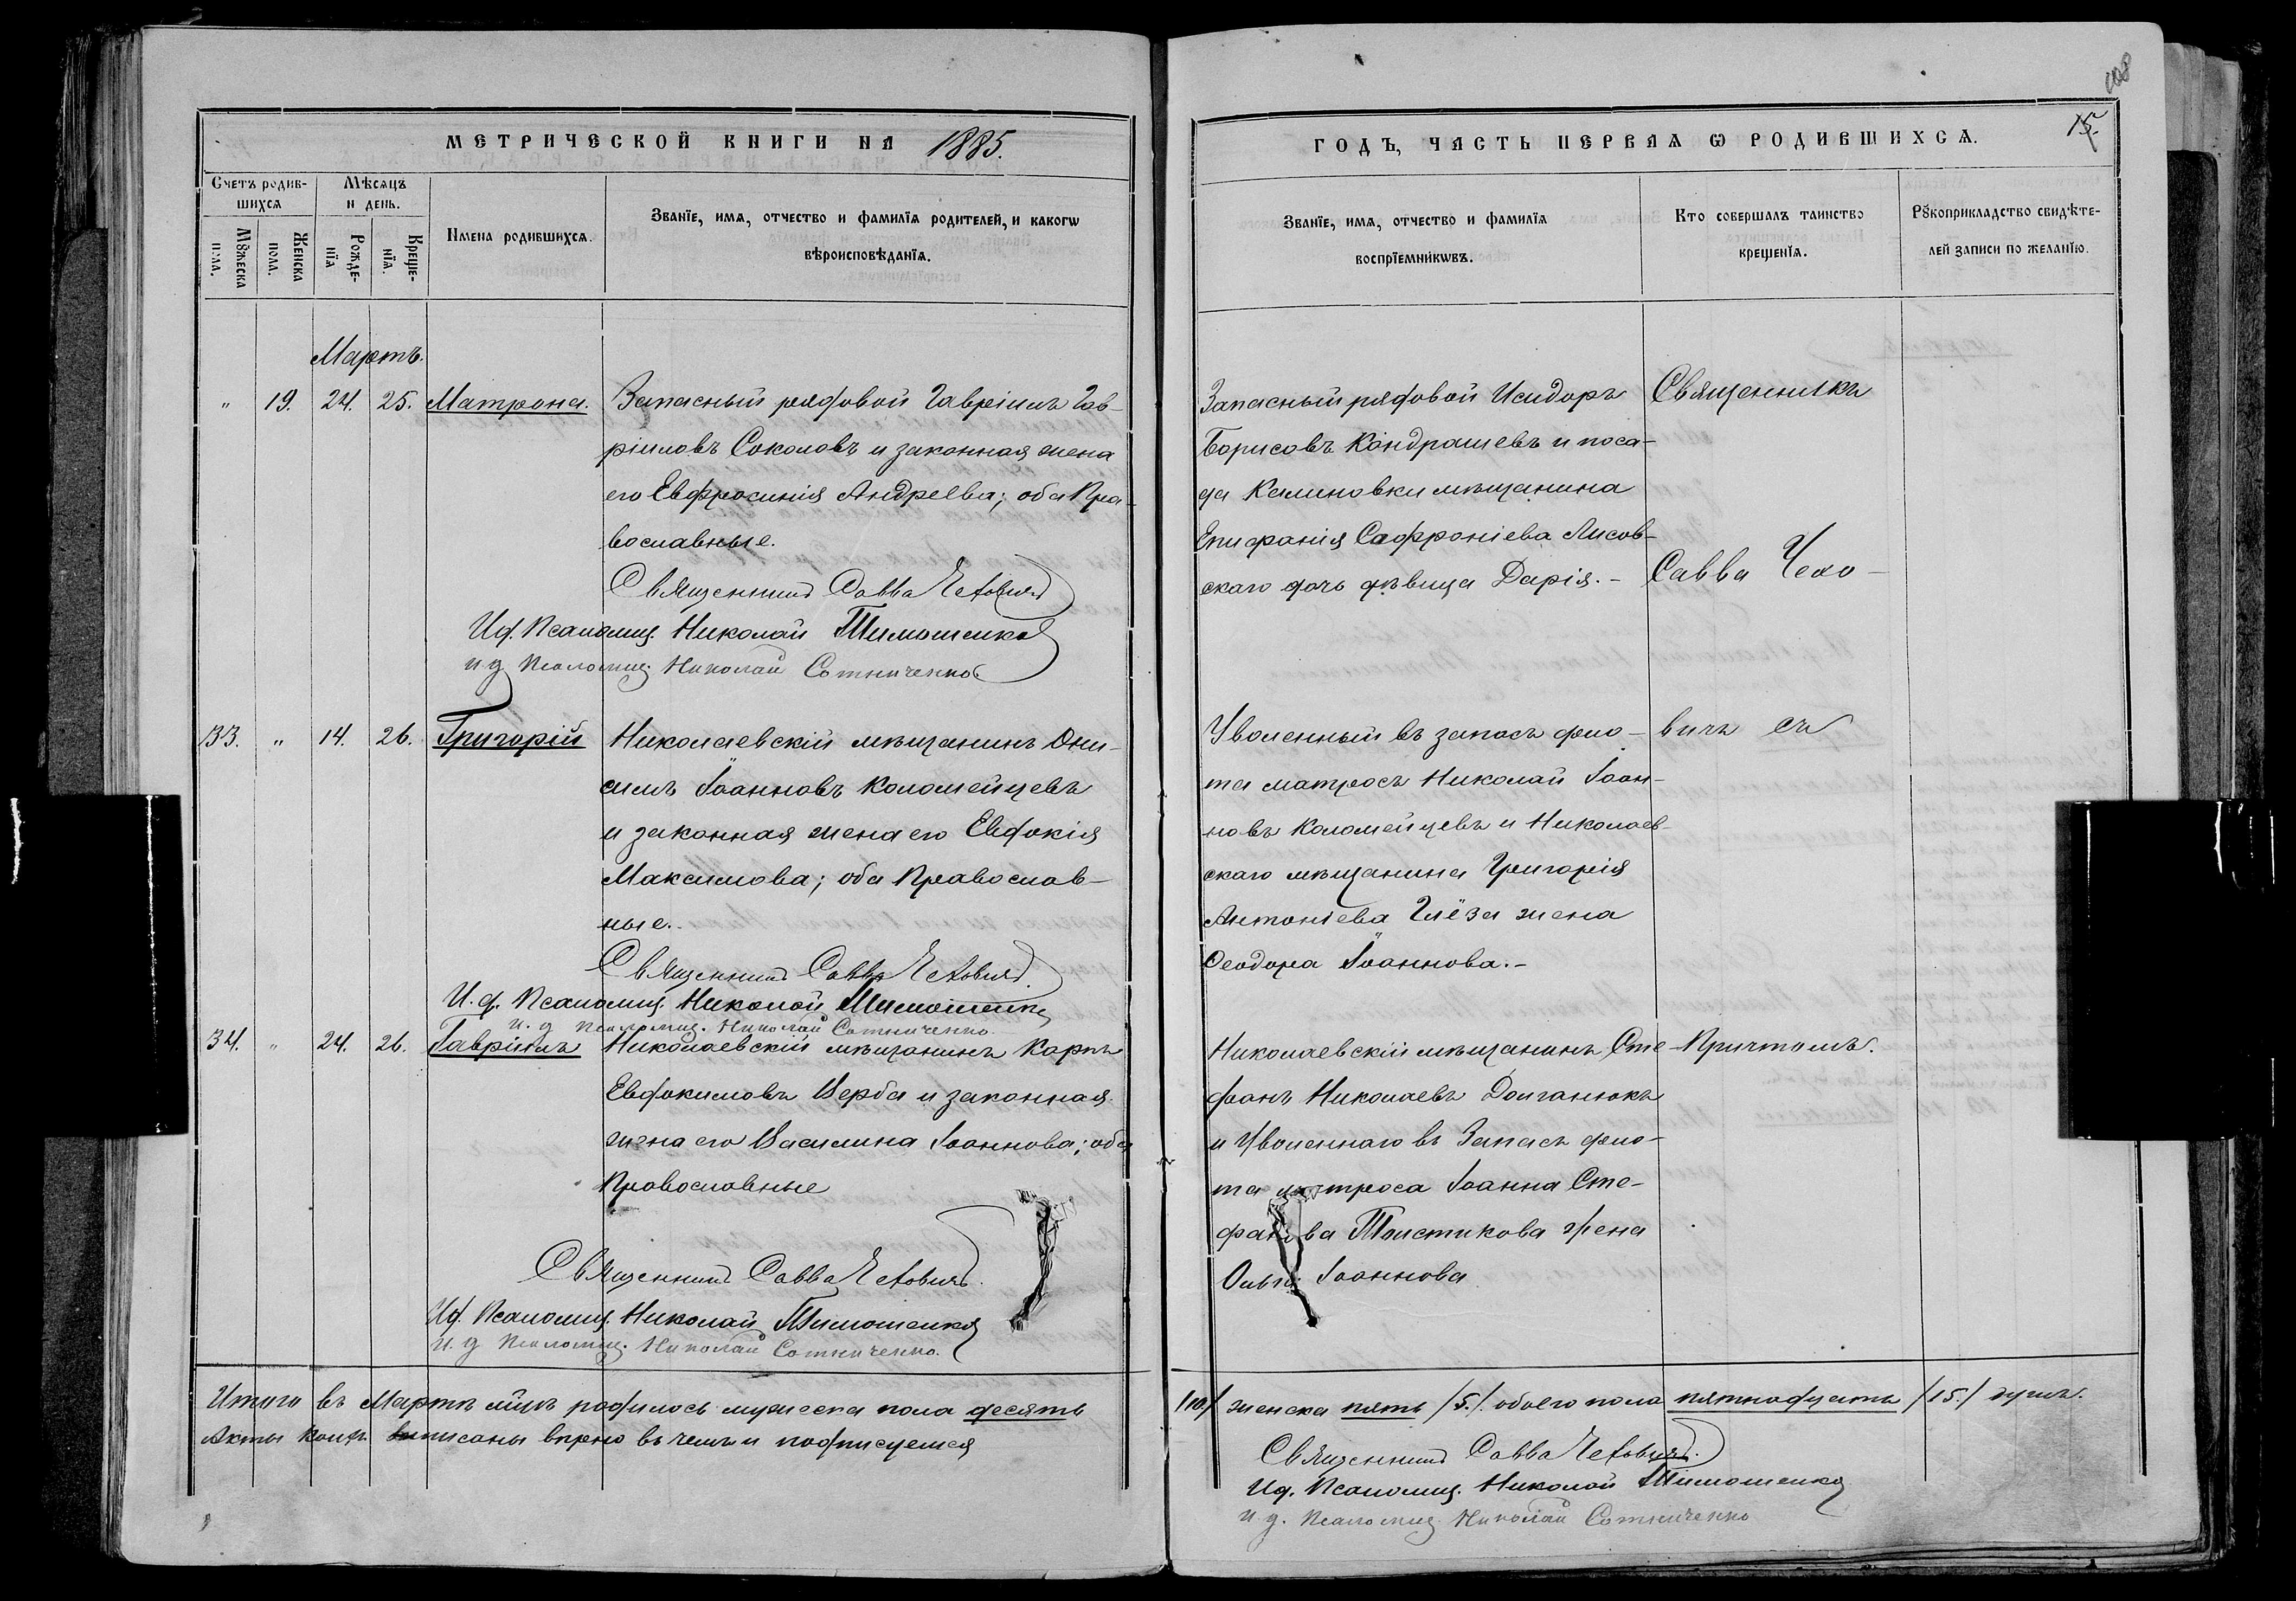 108
МЕТРИЧЕСКОЙ КНИГИ НА 1885.
ГОДЪ, ЧАСТЬ ПЕРВАЯ Ѡ РОДИВШИХСЯ.
15.
Счетъ родив-
шихся
Мѣсяцъ
и день.
Мꙋжеска
пола.
Женска
пола.
Рожде-
нїя
Креще-
нїя.
Имена родившихся.
Званїе, имя, отчество и фамилїя родителей, и какогѡ
вѣроисповѣданїя.
Званїе, имя, отчество и фамилїя
воспрїемникѡвъ.
Кто совершалъ таинство
крещенїя.
Рꙋкоприкладство свидѣте-
лей записи по желанїю.
Мартъ.
" 19. 24. 25. Матрона.
Запасный рядовой Гавріилъ Гав-
ріиловъ Соколовъ и законная жена
его Евфросинія Андреева; оба Пра-
вославные.
Священникъ Савва Чеховичъ
И.д. Псаломщ. Николай Тимошенко
и д Псаломщ. Николай Сотниченко
Запасный рядовой Исидоръ
Борисовъ Кондрашевъ и поса-
да Калиновки мѣщанина
Епифанія Софроніева Лисов-
скаго дочь дѣвица Дарія.-
Священникъ
Савва Чехо-
33. " 14. 26. Григорій
Николаевскій мѣщанинъ Они-
симъ Іоанновъ Коломейцевъ
и законная жена его Евдокія
Максимова; оба Православ-
ные.
Священникъ Савва Чеховичъ.
И.д. Псаломщ. Николай Тимошенко
и. д Псаломщ. Николай Сотниченко.
Уволенный въ запасъ фло-
та матросъ Николай Іоан-
новъ Коломейцевъ и Николаев-
скаго мѣщанина Григорія
Антоніева Глёза жена
Ѳеодора Іоаннова.-
вичъ съ
34. " 24. 26. Гавріилъ
Николаевскій мѣщанинъ Карпъ
Евдокимовъ Верба и законная
жена его Василина Іоаннова; оба
Православные
Священникъ Савва Чеховичъ.
И.д. Псаломщ. Николай Тимошенко
и. д Псаломщ. Николай Сотниченко.
Николаевскій мѣщанинъ Сте-
фанъ Николаевъ Долганюкъ
и Уволеннаго въ Запасъ фло-
та матроса Іоанна Сте-
фанова Толстикова жена
Ольга Іоаннова
Причтомъ.
Итого въ Мартѣ мѣсѣ родилось мужеска пола десять
/10/ женска пять /5./ обоего пола пятнадцать /15./ душъ.
Акты писаны вѣрно въ чемъ и подписуемся
Священникъ Савва Чеховичъ.
И.д. Псаломщ. Николай Тимошенко
и д. Псаломщ Николай Сотниченко